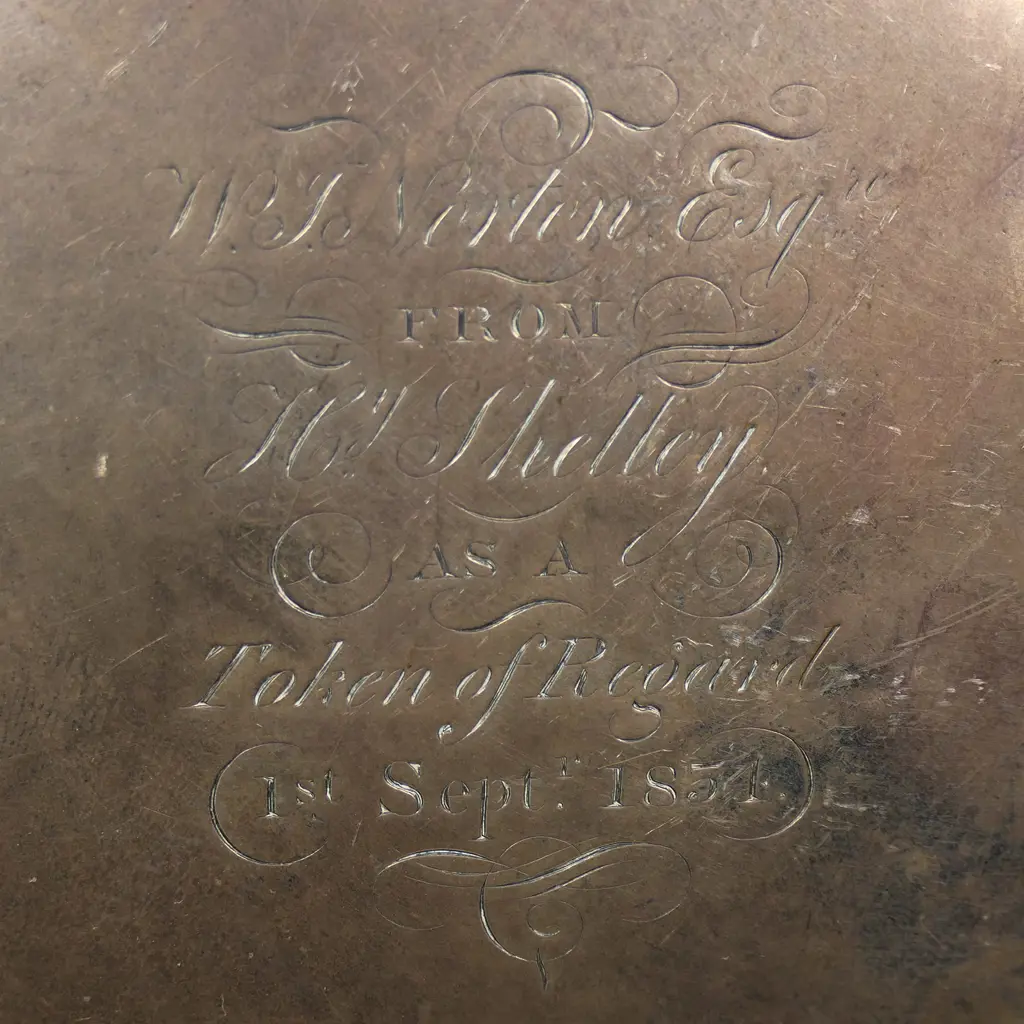 W. J. Norton Esqre
FROM
Hy. Shelley.
AS A
Token of Regard
1st Septr. 1851.